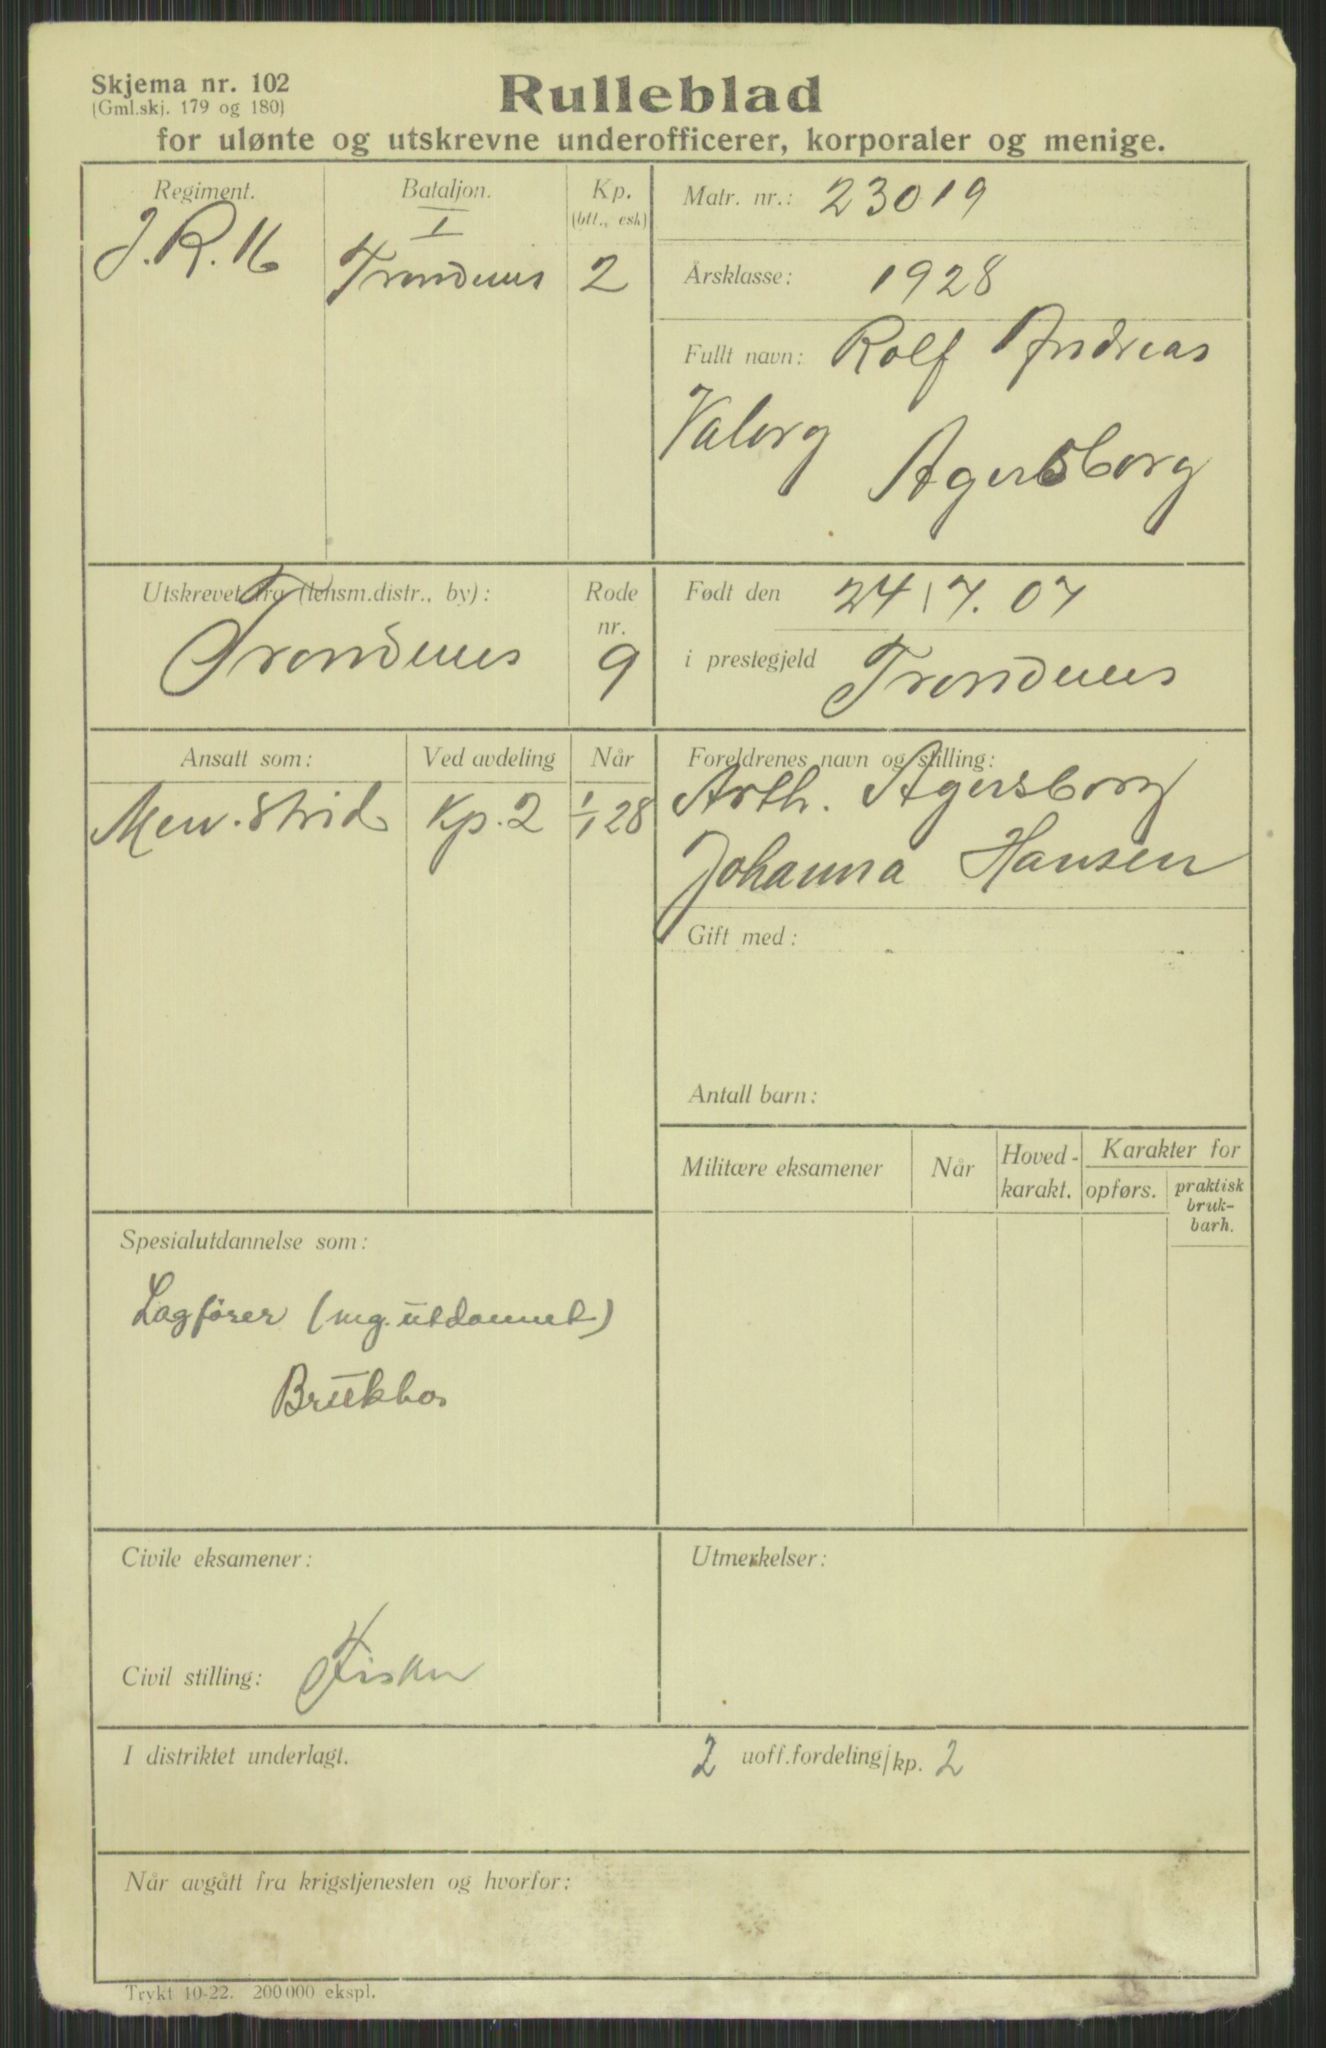 Skjema nr. 102
(Gml.skj. 179 og 180)
Rulleblad
for ulønte og utskrevne underofficerer, korporaler og menige.
Regiment.
J.R. 16
Bataljon.
I
Trondenes
Kp.
(btt., esk)
2
Matr. nr.: 23019
Årsklasse: 1928
Fullt navn: Rolf Andreas
Valorg Agersborg
Utskrevet fra (lensm.distr., by):
Trondenes
Rode
nr.
9
Født den 24/7. 07
i prestegjeld Trondenes
Ansatt som:
Men. Strid
Ved avdeling
Kp. 2
Når
1/1 28
Foreldrenes navn og stilling:
Arth. Agersborg
Johanna Hansen
Gift med:
Antall barn:
Militære eksamener
Når
Hoved-
karakt.
Karakter for
opførs.
praktisk
bruk-
barh.
Spesialutdannelse som:
Lagfører (mg. utdannet)
Brukbar
Civile eksamener:
Civil stilling: Fisker
Utmerkelser:
I distriktet underlagt. 2 uoff.fordeling/kp. 2
Når avgått fra krigstjenesten og hvorfor:
Trykt 10-22. 200000 ekspl.